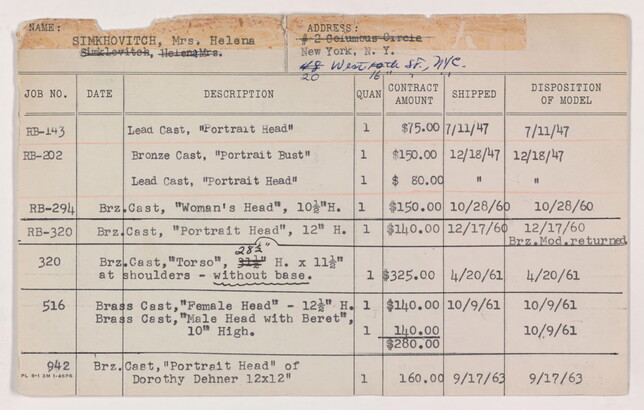 NAME: ADDRESS:
SIMKHOVITCH, Mrs. Helena # 2 Columbus Circle
Simklovitch, HelenaMrs. New York, N. Y.
West St., NYC.
20 16 " " "
JOB NO. DATE DESCRIPTION QUAN CONTRACT AMOUNT SHIPPED DISPOSITION OF MODEL
RB-143 Lead Cast, "Portrait Head" 1 $75.00 7/11/47 7/11/47
RB-202 Bronze Cast, "Portrait Bust" 1 $150.00 12/18/47 12/18/47
Lead Cast, "Portrait Head" 1 $ 80.00 " "
RB-294 Brz.Cast, "Woman's Head", 10½"H. 1 $150.00 10/28/60 10/28/60
RB-320 Brz.Cast, "Portrait Head", 12" H. 1 $140.00 12/17/60 12/17/60
Brz.Mod.returned
28½"
320 Brz.Cast,"Torso", 31½" H. x 11½"
at shoulders - without base. 1 $325.00 4/20/61 4/20/61
516 Brass Cast,"Female Head" - 12½" H. 1 $140.00 10/9/61 10/9/61
Brass Cast,"Male Head with Beret",
10" High. 1 140.00 10/9/61
$280.00
942 Brz.Cast,"Portrait Head" of
Dorothy Dehner 12x12" 1 160.00 9/17/63 9/17/63